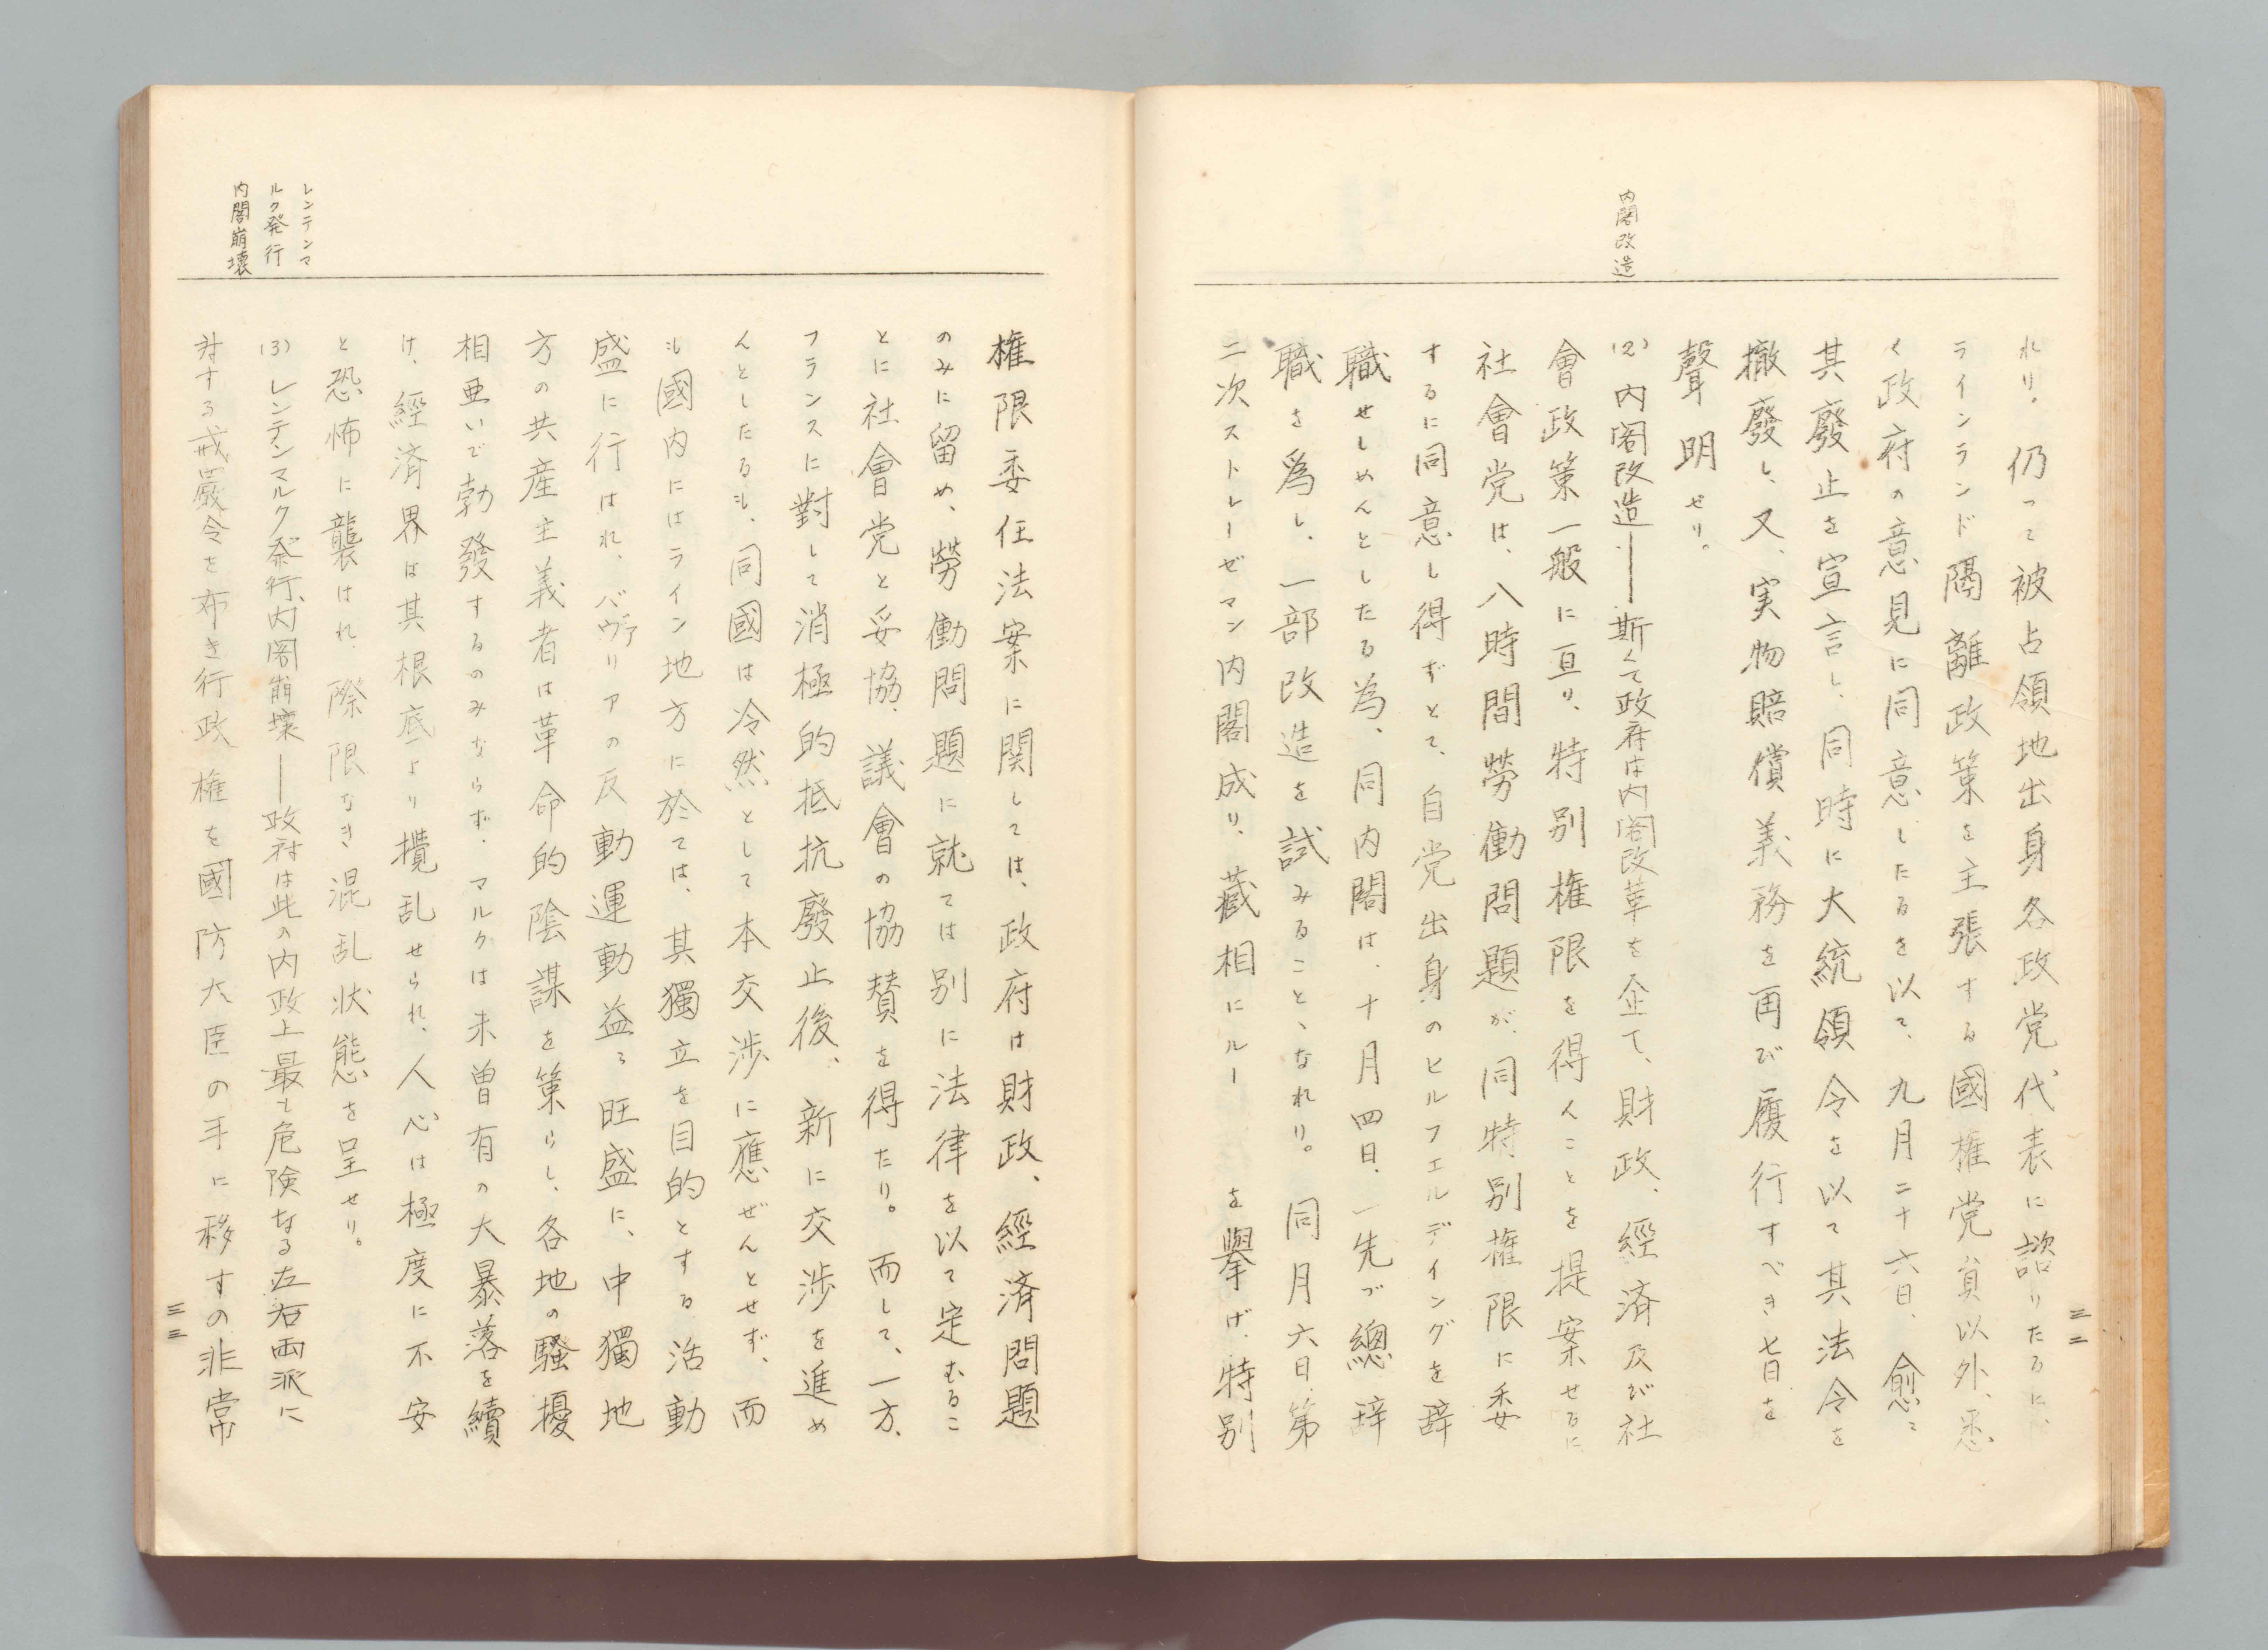 三二
内閣改造
れり。仍って被占領地出身各政党代表に諮りたるに、
ラインランド隔離政策を主張する國権党員以外、悉
く政府の意見に同意したるを以て、九月二十六日、愈〻
其廢止を宣言し、同時に大統領令を以て其法令を
撤廢し、又、実物賠償義務を再び履行すべき七日を
聲明せり。
(2)内閣改造――斯くて政府は内閣改革を企て、財政、經済及び社
會政策一般に亘り、特別権限を得んことを提案せるに
社會党は、八時間勞働問題が、同特別権限に委
するに同意し得ずとて、自党出身のヒルフェルディングを辞
職せしめんとしたる為、同内閣は、十月四日、一先づ總辞
職を爲し、一部改造を試みることゝなれり。同月六日、第
二次ストレーゼマン内閣成り、蔵相にルー を擧げ、特別
レンテンマ
ルク発行
内閣崩壊
権限委任法案に関しては、政府は財政、經済問題
のみに留め、勞働問題に就ては別に法律を以て定むるこ
とに社會党と妥協、議會の協賛を得たり。而して、一方、
フランスに對して消極的抵抗廢止後、新に交渉を進め
んとしたるも、同國は冷然として本交渉に應ぜんとせず、而
も國内にはライン地方に於ては、其獨立を目的とする活動
盛に行はれ、バヴァリアの反動運動益〻旺盛に、中獨地
方の共産主義者は革命的陰謀を策らし、各地の騒擾
相亜いで勃發するのみならず、マルクは未曽有の大暴落を續
け、經済界は其根底より攪乱せられ、人心は極度に不安
と恐怖に襲はれ、際限なき混乱状態を呈せり。
(3)レンテンマルク発行、内閣崩壊――政府は此の内政上最も危険なる左右両派に
対する戒嚴令を布き行政権を國防大臣の手に移すの非常
三三